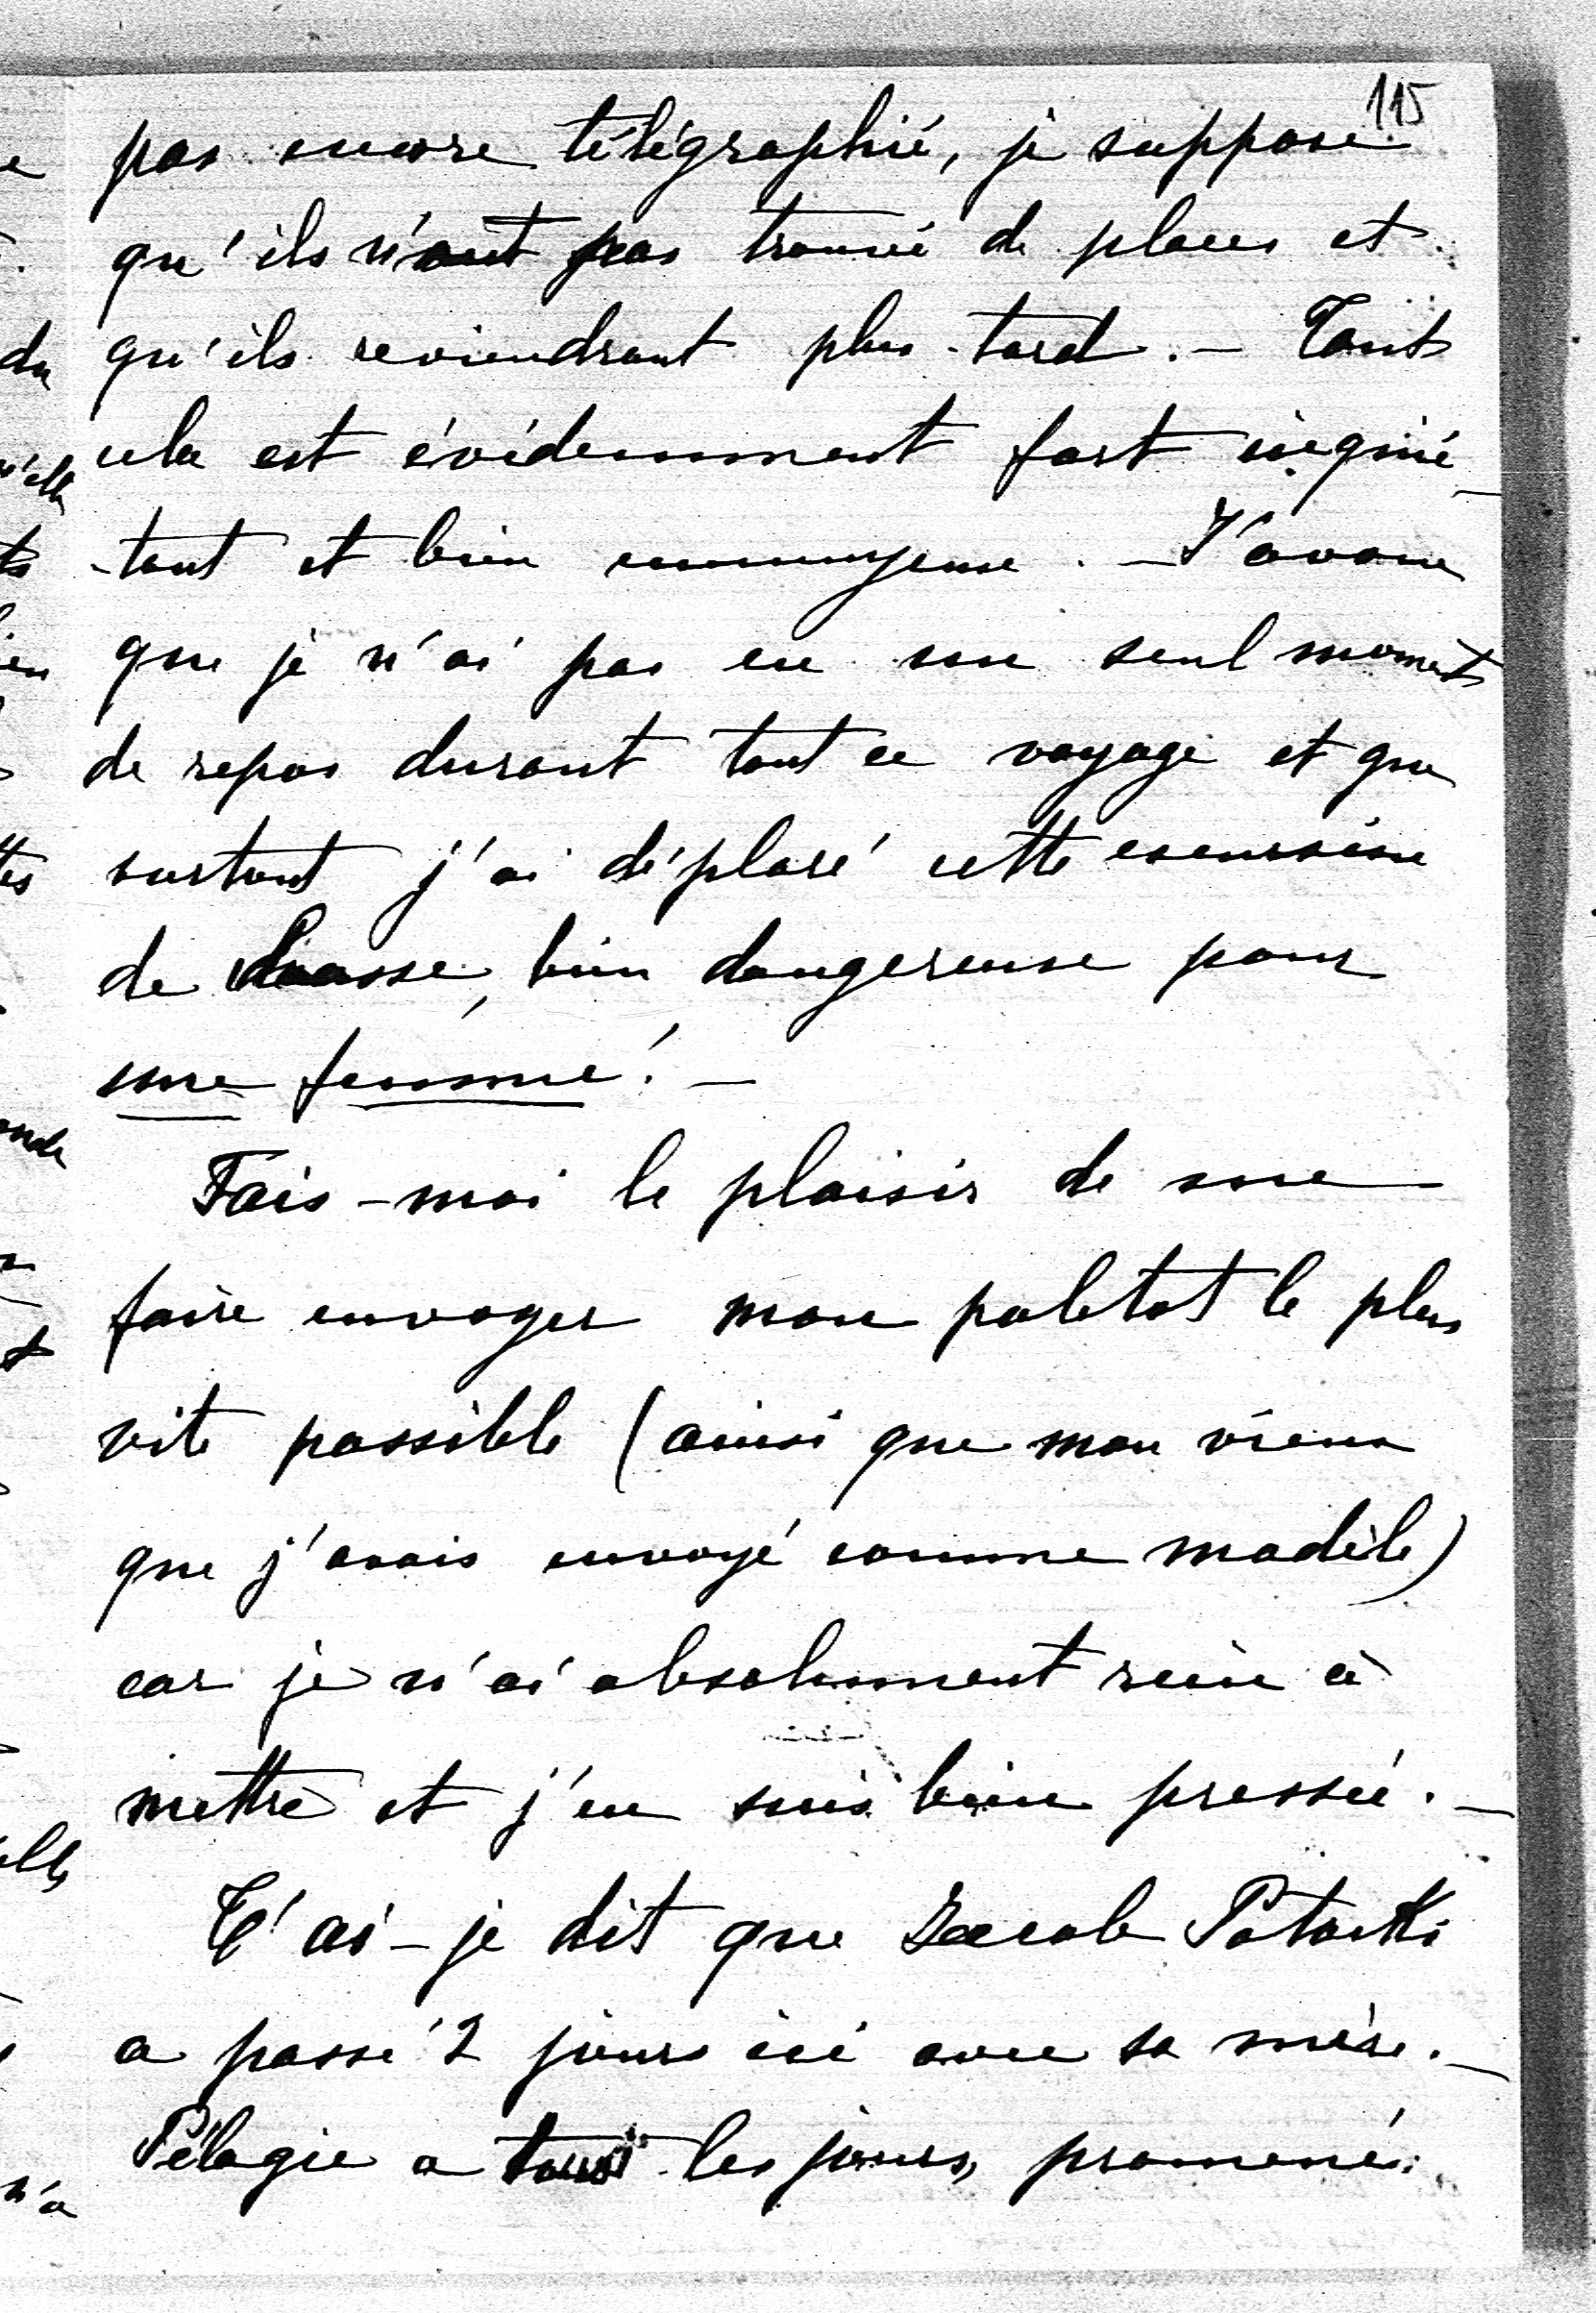 115
pas encore télégraphié, je suppose
qu'ils n'ont pas trouvé de places et
qu'ils reviendront plus tard. — Tout
cela est évidemment fort inquié-
-tant et bien ennuyeux. — J'avoue
que je n'ai pas eu un seul moment
de repos durant tout ce voyage et que
surtout j'ai déploré cette excursion
de chasse, bien dangereuse pour
une femme! —
Fais-moi le plaisir de me
faire envoyer mon paletot le plus
vite possible (ainsi que mon vieux
que j'avais envoyé comme modèle)
car je n'ai absolument rien à
mettre et j'en suis bien pressée. —
T'ai-je dit que Jacob Potocki
a passé 2 jours ici avec sa mère. —
Pélagie a tous les jours, promené